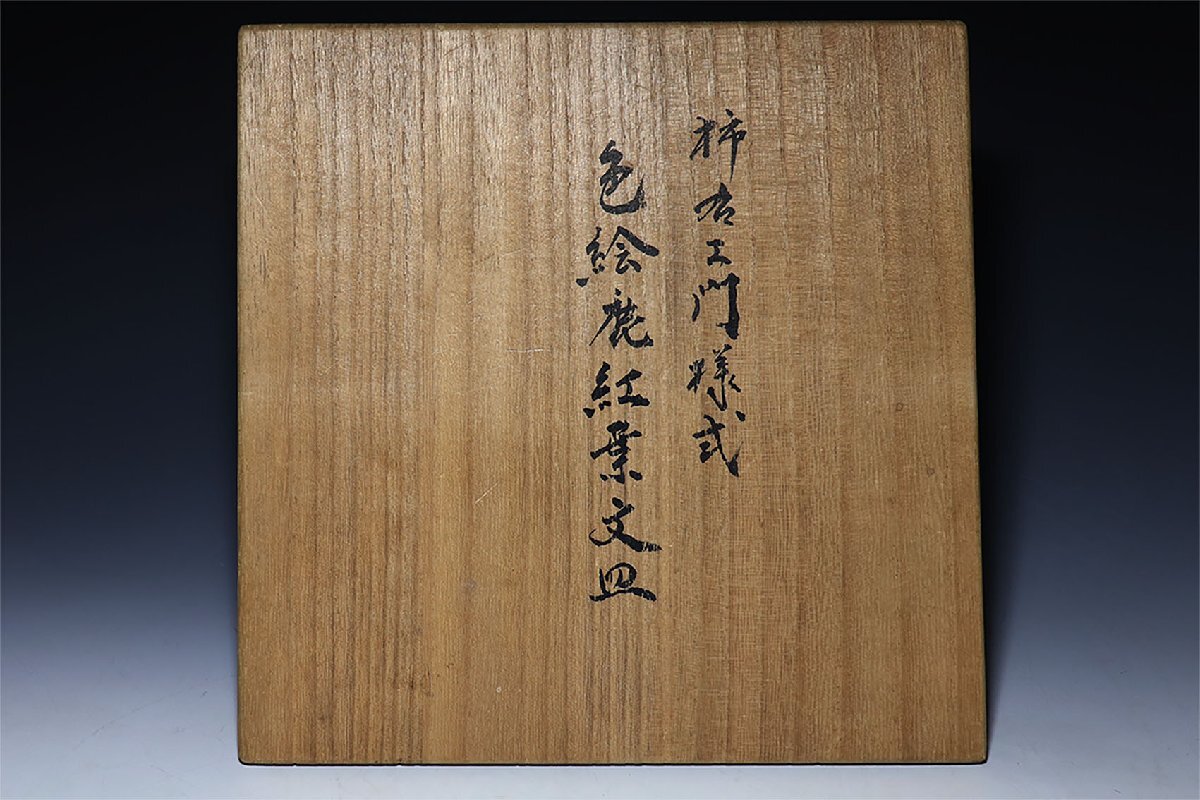 柿右エ門様式
色絵鹿紅葉文皿